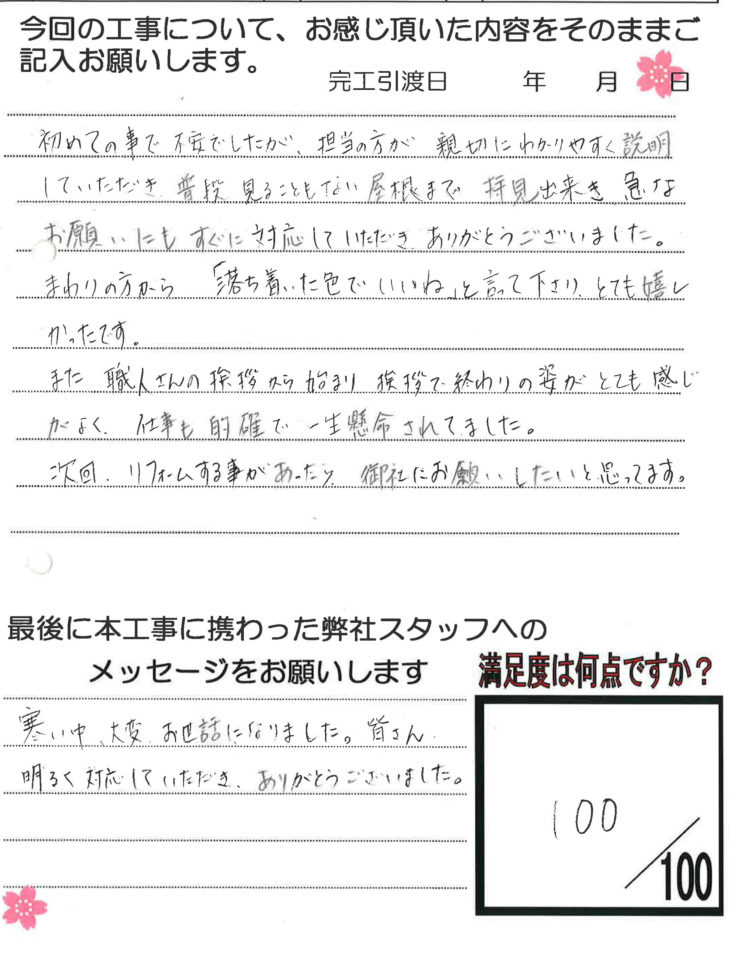 今回の工事について、お感じ頂いた内容をそのままご
記入お願いします。
完工引渡日　年　月　日
初めての事で 不安でしたが、担当の方が 親切にわかりやすく説明
していただき 普段 見ることもない屋根まで 拝見出来き 急な
お願いにも すぐに対応していただき ありがとうございました。
まわりの方から 「落ち着いた色でいいね」と言って下さり、とても嬉し
かったです。
また 職人さんの挨拶から始まり 挨拶で終わりの姿が とても感じ
がよく、仕事も的確で 一生懸命されてました。
次回、リフォームする事があったら 御社にお願いしたいと思ってます。
最後に本工事に携わった弊社スタッフへの
メッセージをお願いします
寒い中、大変 お世話になりました。皆さん
明るく対応していただき、ありがとうございました。
満足度は何点ですか？
100
/100